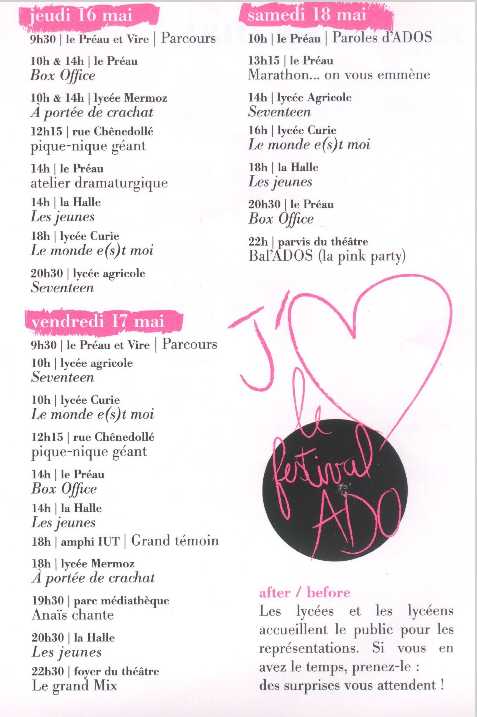 jeudi 16 mai
9h30 | le Préau et Vire | Parcours
10h & 14h | le Préau
Box Office
10h & 14h | lycée Mermoz
À portée de crachat
12h15 | rue Chênedollé
pique-nique géant
14h | le Préau
atelier dramaturgique
14h | la Halle
Les jeunes
18h | lycée Curie
Le monde e(s)t moi
20h30 | lycée agricole
Seventeen
vendredi 17 mai
9h30 | le Préau et Vire | Parcours
10h | lycée agricole
Seventeen
10h | lycée Curie
Le monde e(s)t moi
12h15 | rue Chênedollé
pique-nique géant
14h | le Préau
Box Office
14h | la Halle
Les jeunes
18h | amphi IUT | Grand témoin
18h | lycée Mermoz
À portée de crachat
19h30 | parc médiathèque
Anaïs chante
20h30 | la Halle
Les jeunes
22h30 | foyer du théâtre
Le grand Mix
samedi 18 mai
10h | le Préau | Paroles d'ADOS
13h15 | le Préau
Marathon... on vous emmène
14h | lycée Agricole
Seventeen
16h | lycée Curie
Le monde e(s)t moi
18h | la Halle
Les jeunes
20h30 | le Préau
Box Office
22h | parvis du théâtre
Bal'ADOS (la pink party)
J'
le
festival
ADO
after / before
Les lycées et les lycéens
accueillent le public pour les
représentations. Si vous en
avez le temps, prenez-le :
des surprises vous attendent !